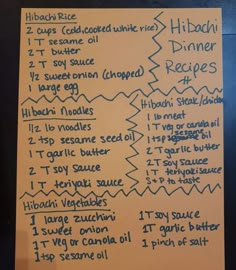 Hibachi Rice
2 cups (cold, cooked white rice)
1 T sesame oil
2 T butter
2 T soy sauce
1/2 sweet onion (chopped)
1 large egg
Hibachi
Dinner
Recipes
#
Hibachi Noodles
1/2 lb noodles
2 tsp sesame seed oil
1 T garlic butter
2 T soy sauce
1 T teriyaki sauce
Hibachi Steak/chicken
1 lb meat
1 T veg or canola oil
1 tsp sesame oil
2 T garlic butter
2 T soy sauce
1 T teriyaki sauce
S + P to taste
Hibachi Vegetables
1 large zucchini
1 sweet onion
1 T veg or canola oil
1 tsp sesame oil
1 T soy sauce
1 T garlic butter
1 pinch of salt